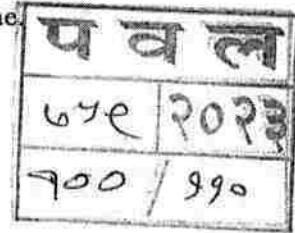 ne.
प व ल
७५९ २०२३
१०० / ११०